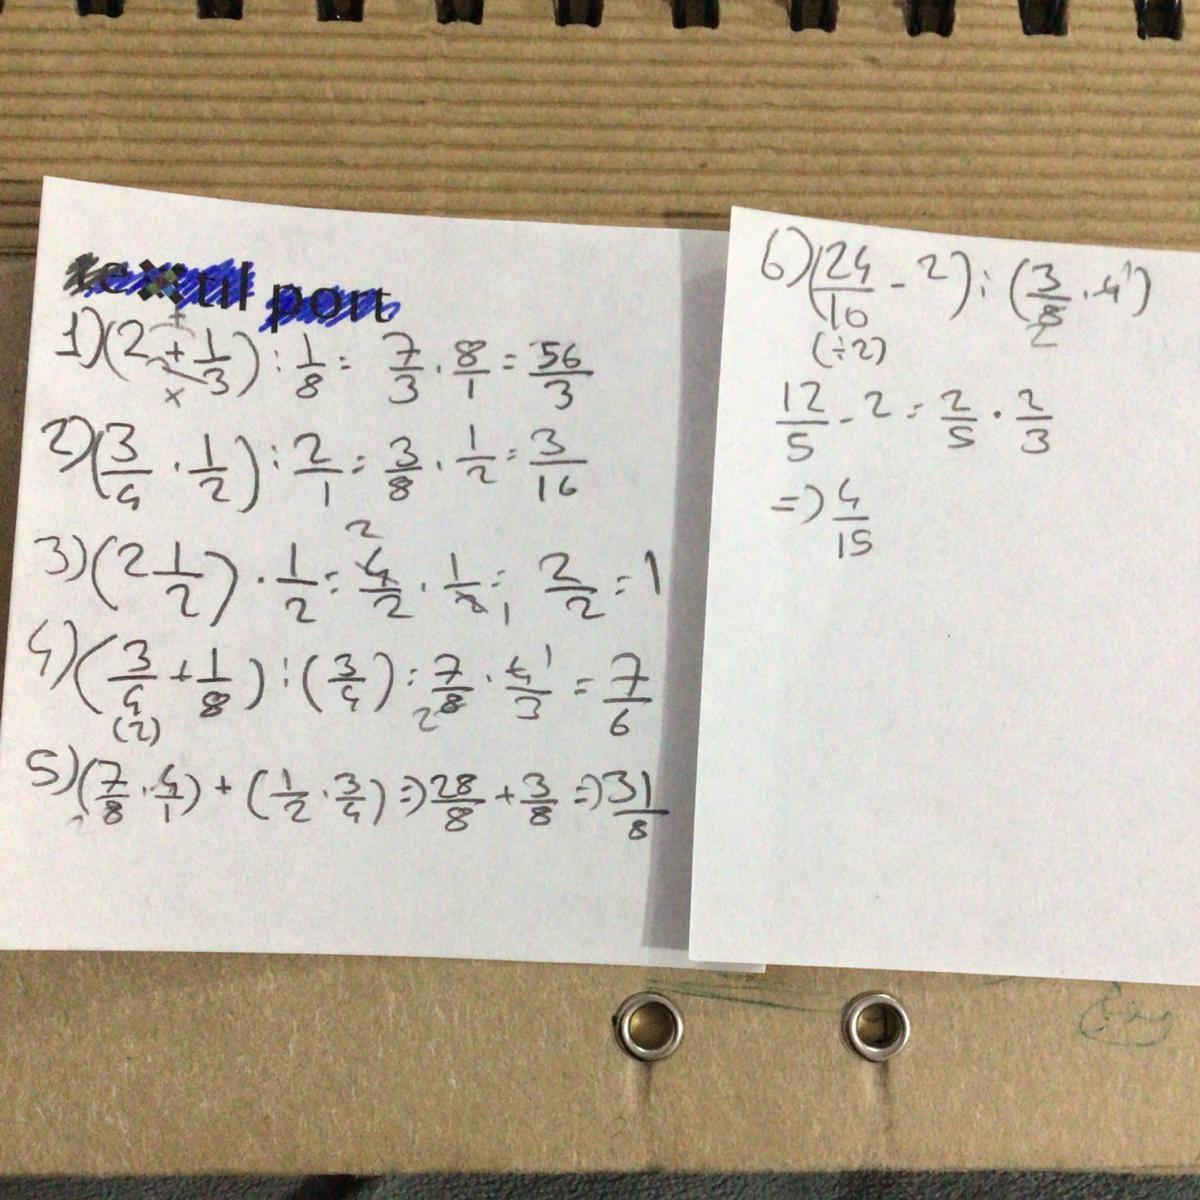 textil port
1) (2 + 1/3) : 1/8 = 7/3 · 8/1 = 56/3
+
x
2) (3/4 · 1/2) : 2/1 = 3/8 · 1/2 = 3/16
3) (2 1/2) · 1/2 = 4/2 · 1/2 = 2/2 = 1
2
1
4) (3/4 + 1/8) : (3/4) = 7/8 · 4/3 = 7/6
1
(2)
2
5) (7/8 · 4/1) + (1/2 · 3/4) => 28/8 + 3/8 => 31/8
6) (24/10 - 2) : (3/8 · 4)
1
2
(÷2)
12/5 - 2 = 2/5 · 2/3
=> 4/15